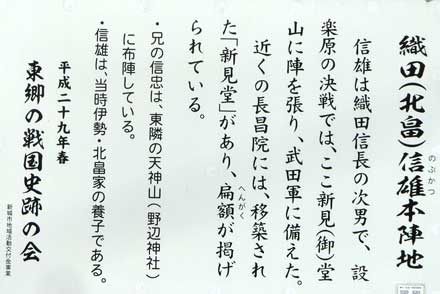 織田(北畠)信雄本陣地
のぶかつ
信雄は織田信長の次男で、設
楽原の決戦では、ここ新見(御)堂
山に陣を張り、武田軍に備えた。
近くの長昌院には、移築され
た「新見堂」があり、扁額が掲げ
へんがく
られている。
・兄の信忠は、東隣の天神山(野辺神社)
に布陣している。
・信雄は、当時伊勢・北畠家の養子である。
平成二十九年春
東郷の戦国史跡の会
新城市地域活動交付金事業